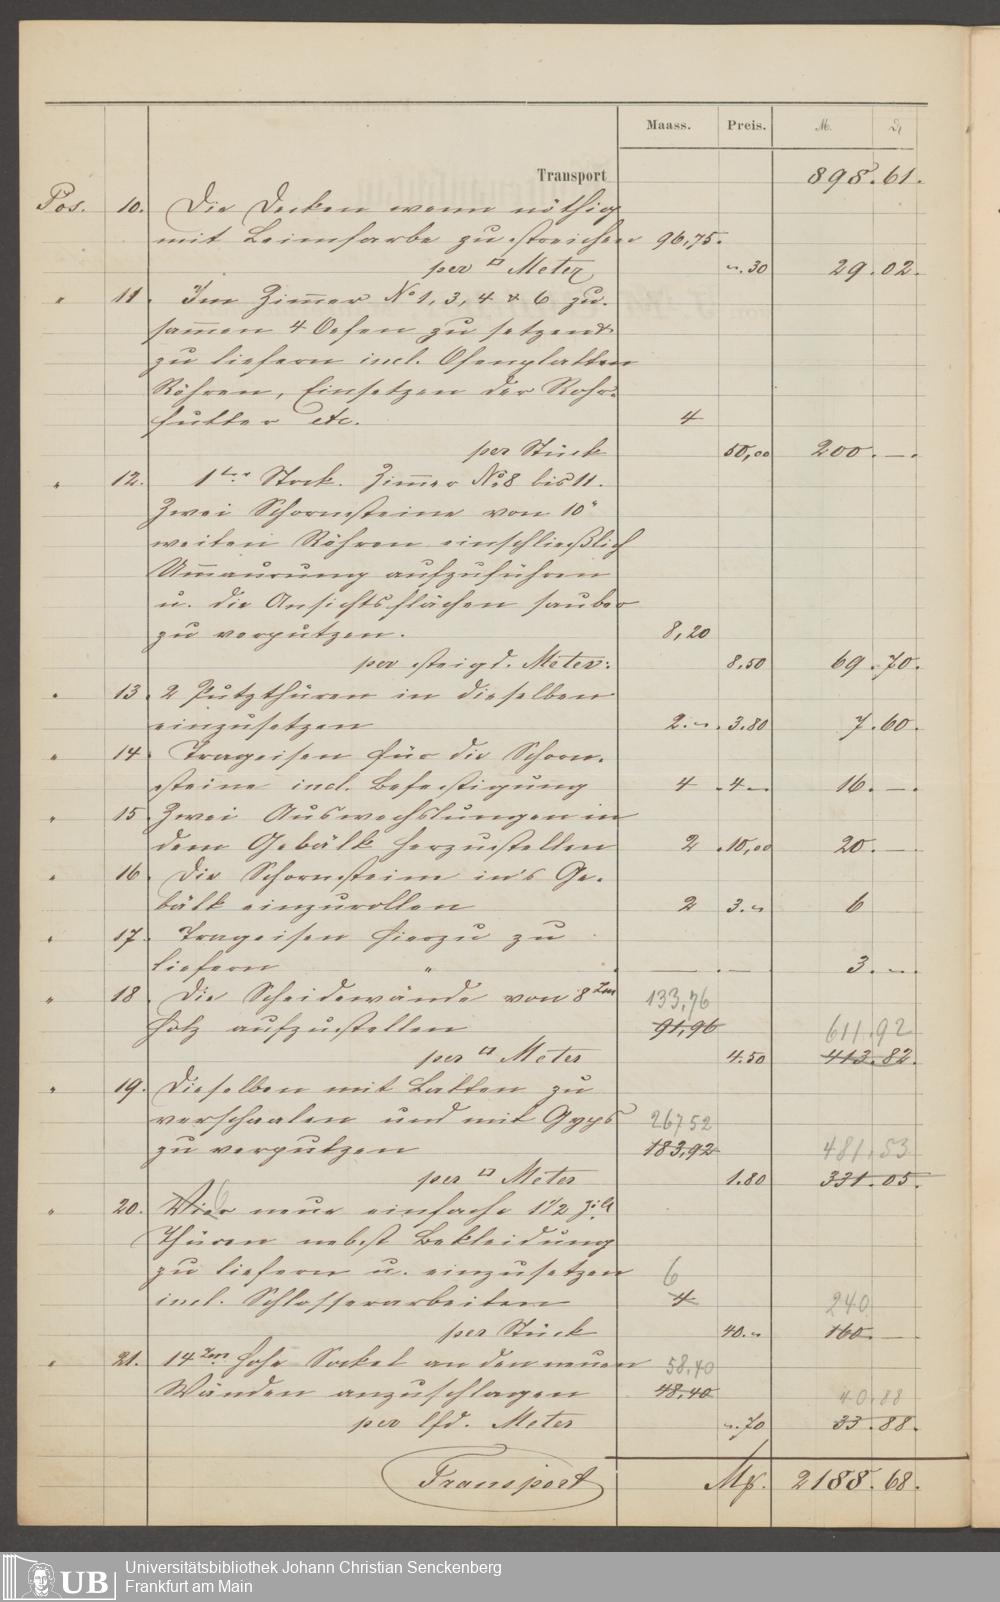 Maass. Preis. M. ₰
Transport 898. 61.
Pos. 10. Die Decken wenn nöthig
mit Leimfarbe zu streichen 96,75.
per □ Meter „. 30 29. 02.
" 11. Im Zimmer No 1, 3, 4 & 6 zu-
sammen 4 Oefen zu setzen &
zu liefern incl. Ofenplatten
Röhren, Einsetzen der Rohr-
futter etc. 4
per Stück 50,00 200. —.
" 12. 1ter Stock. Zimmer No 8 bis 11.
Zwei Schornsteine von 10"
weiten Röhren einschließlich
Ummaurung aufzuführen
u. die Ansichtsflächen sauber
zu verputzen. 8,20
per steigd. Meter: 8.50 69. 70.
" 13. 2 Putzthüren in dieselben
einzusetzen 2. „. 3.80 7. 60.
" 14. Trageisen für die Schorn-
steine incl. Befestigung 4 . 4 — 16. —.
" 15. Zwei Auswechslungen in
dem Gebälk herzustellen 2 . 10,00 20. —
" 16. Die Schornsteine in's Ge-
bälk einzurollen 2 3. „ 6
" 17. Trageisen hierzu zu
liefern " — . — 3. —.
" 18. Die Scheidewände von 8 Zm 133,76
Holz aufzustellen 91,96 611.92
per □ Meter 4.50 413. 82.
" 19. Dieselben mit Latten zu
verschaalen und mit Gyps 267 52
zu verputzen 183,92 481.53
per □ Meter 1.80 331. 05.
" 20. Vier 6 neue einfache 1 1/2 zöll.
Thüren nebst Bekleidung
zu liefern u. einzusetzen 6
incl. Schlosserarbeiten 4 240
per Stück 40. „ 160. —
" 21. 14 Zm hohe Sockel an den neuen 58,40
Wänden anzuschlagen 48,40 40.88
per lfd. Meter „. 70 33. 88.
Transport Mk. 2188. 68.
UB Universitätsbibliothek Johann Christian Senckenberg
Frankfurt am Main